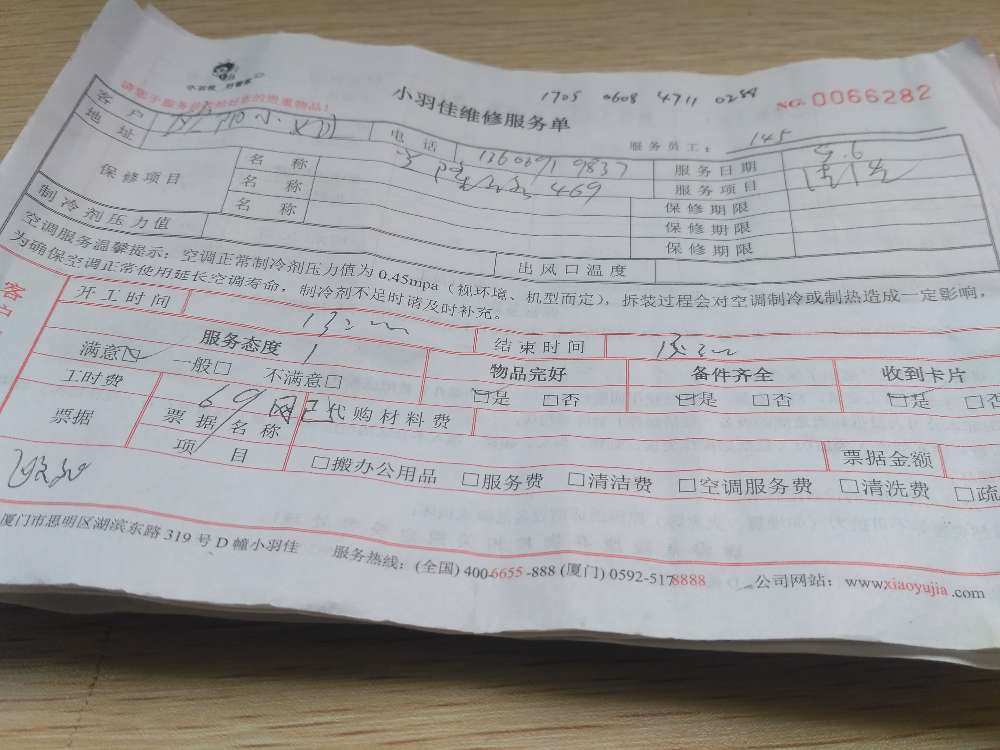 小羽佳 好管家
请您于服务前收拾好您的贵重物品！
小羽佳维修服务单
1705 0608 4711 0288
NO. 0066282
服务员工： 145
客户 电话 服务日期 9.6
地址 469 服务项目 清洗
保修项目 名称 保修期限
名称 保修期限
名称 保修期限
制冷剂压力值 出风口温度
空调服务温馨提示：空调正常制冷剂压力值为 0.45mpa（视环境、机型而定），拆装过程会对空调制冷或制热造成一定影响，
为确保空调正常使用延长空调寿命，制冷剂不足时请及时补充。
开工时间 结束时间
服务态度 物品完好 备件齐全 收到卡片
满意☑ 一般□ 不满意□ ☑是 □否 ☑是 □否 ☑是 □否
工时费 69 网已 代购材料费
票据 票据名称 票据金额
项目 □搬办公用品 □服务费 □清洁费 □空调服务费 □清洗费 □疏
厦门市思明区湖滨东路 319 号 D 幢小羽佳 服务热线：(全国) 400-6655-888 (厦门) 0592-5178888 公司网站：www.xiaoyujia.com